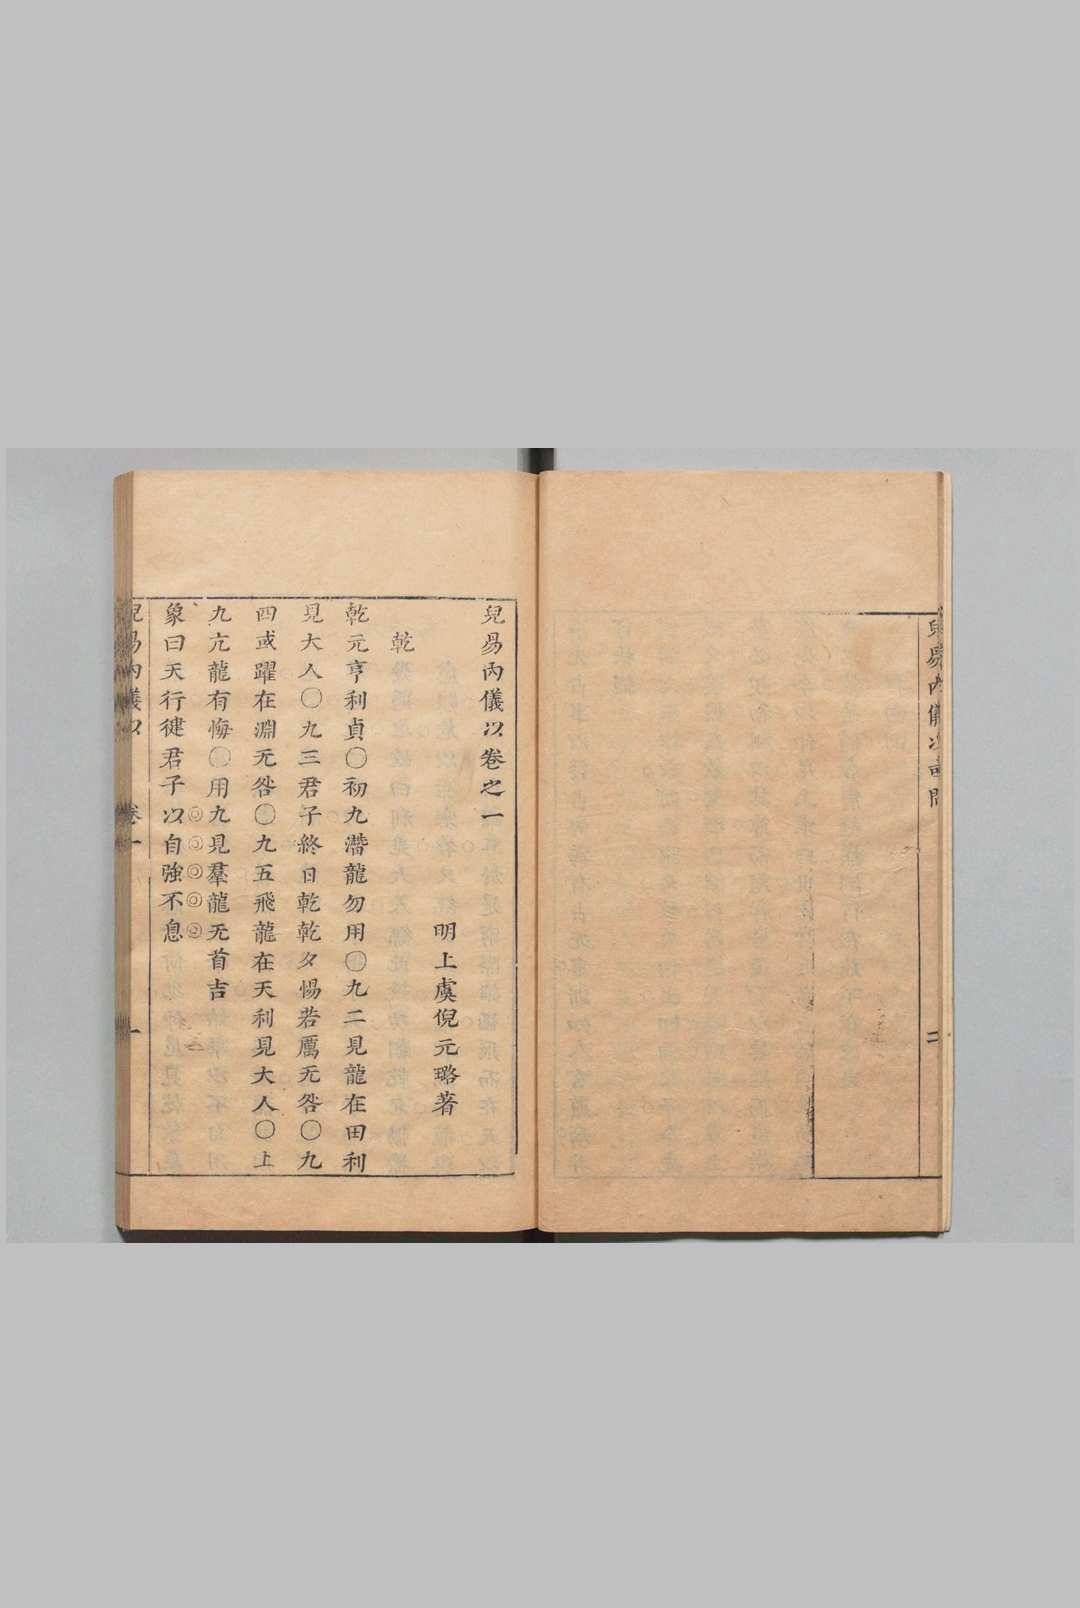 兒易內儀以或問
二
兒易內儀以卷之一
明上虞倪元璐著
乾
乾元亨利貞〇初九潛龍勿用〇九二見龍在田利
見大人〇九三君子終日乾乾夕惕若厲无咎〇九
四或躍在淵无咎〇九五飛龍在天利見大人〇上
九亢龍有悔〇用九見羣龍无首吉
象曰天行健君子以自強不息
兒易內儀以
卷一
一